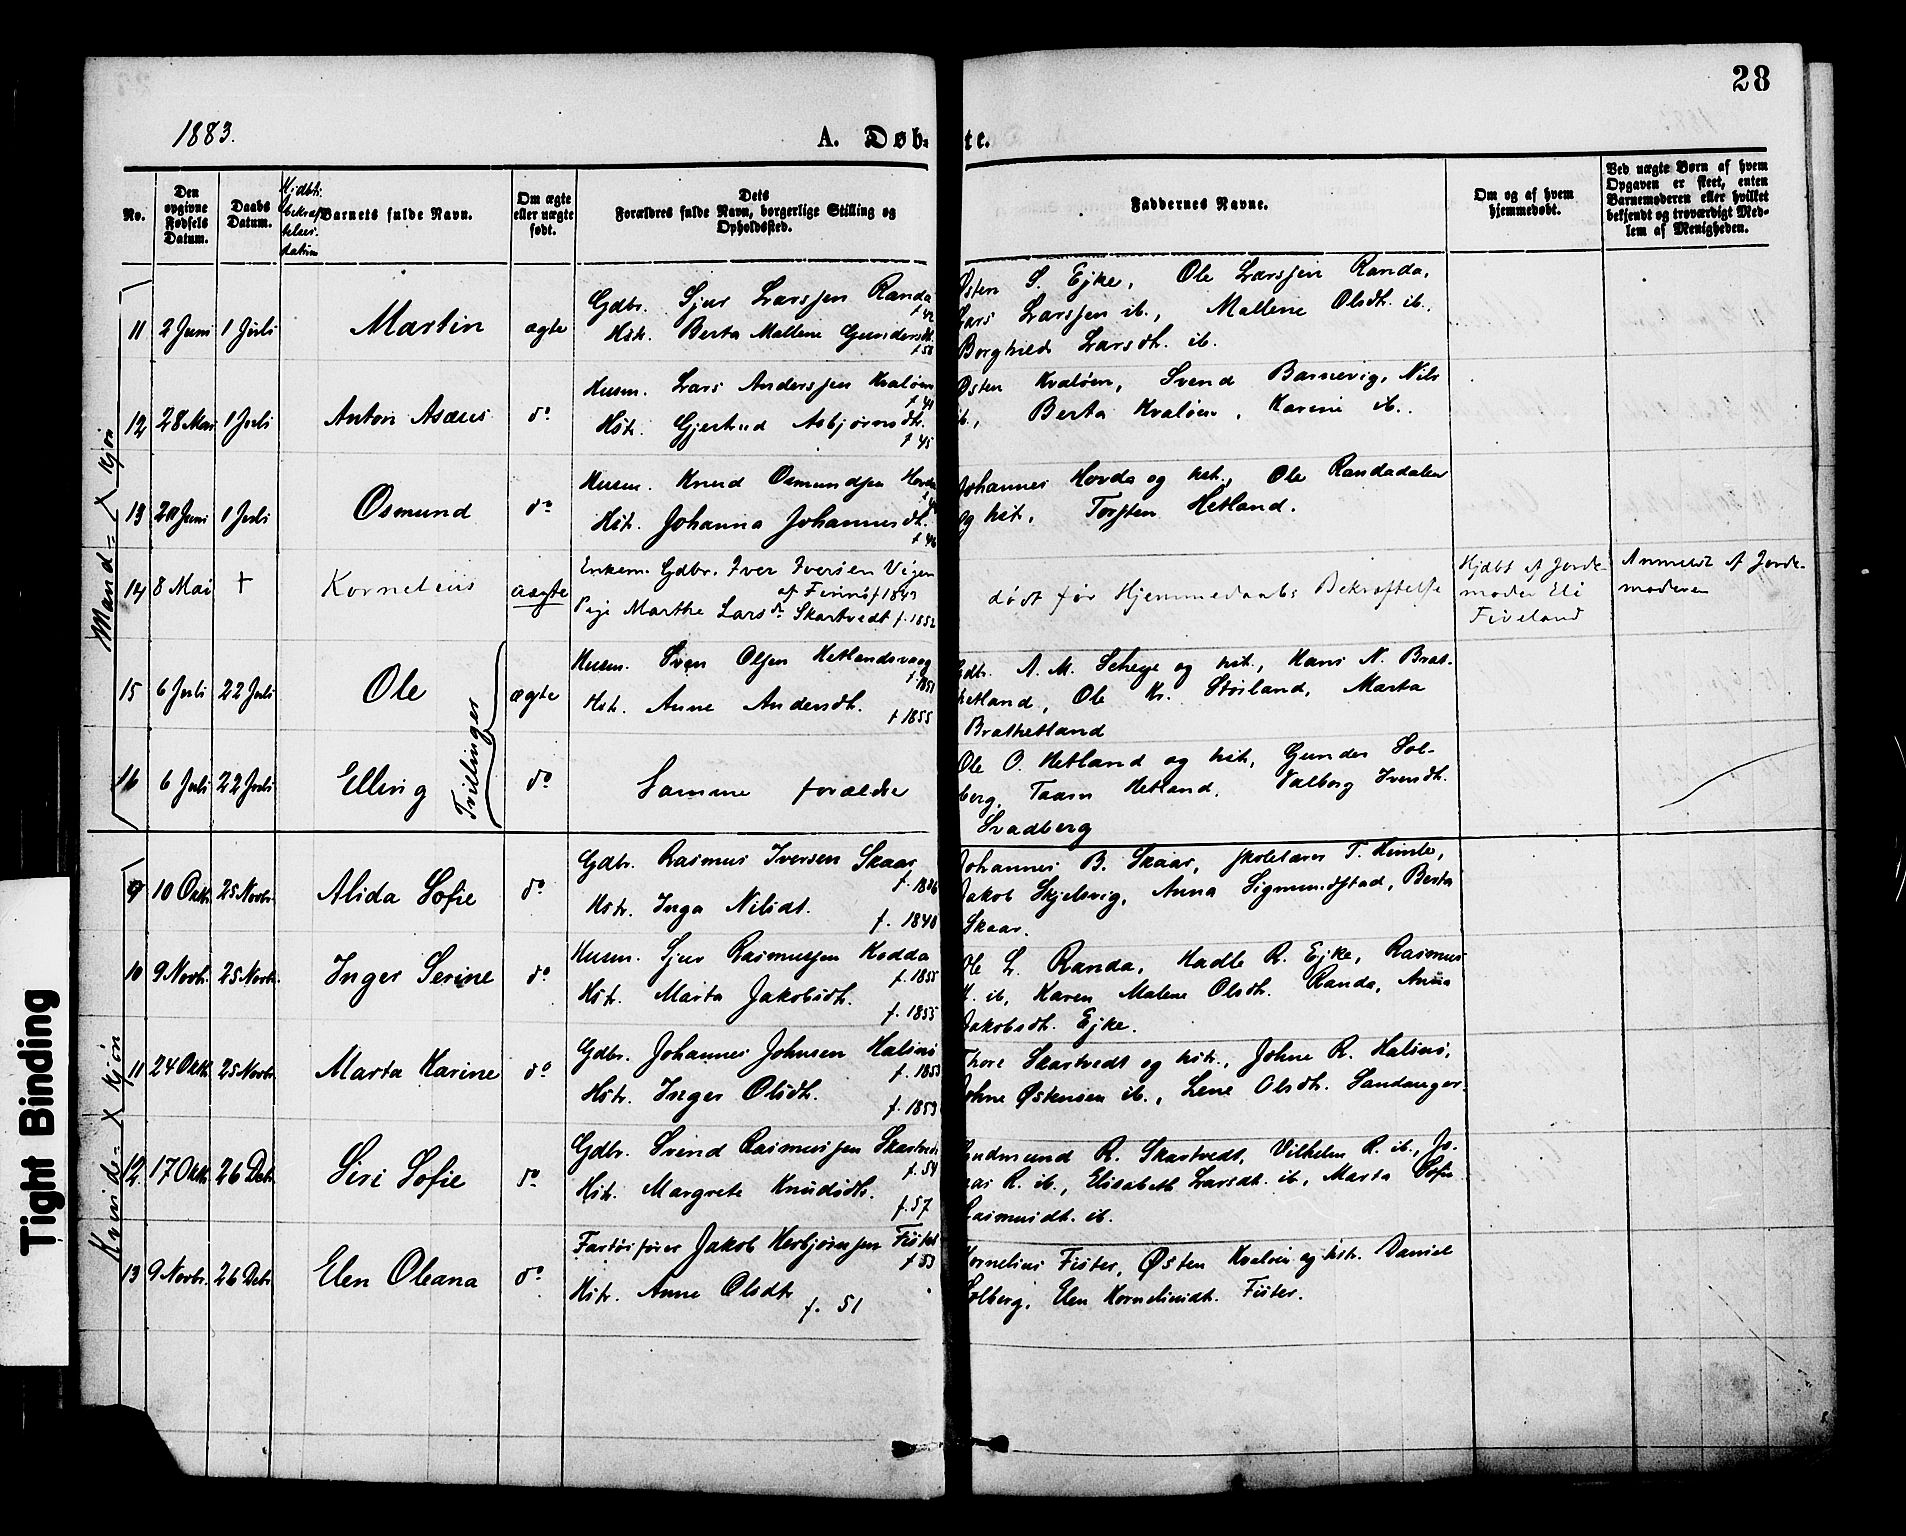 28
1883.
A. Døb- te.
No.
Den opgivne Fødsels Datum.
Daabs Datum.
Hjdbts. bekræf- telses datum
Barnets fulde Navn.
Om ægte eller uægte født.
Dets Forældres fulde Navn, borgerlige Stilling og Opholdssted.
Faddernes Navne.
Om og af hvem hjemmedøbt.
Ved uægte Børn af hvem Opgaven er skeet, enten Barnemoderen eller hvilket bekjendt og troværdigt Med- lem af Menigheden.
Mand- Kjøn
11 2 Juni 1 Juli Martin ægte
Gdbr. Sjur Larssen Randa
f 42
Hst. Berta Mallene Gundersdt.
f 58
Østen S. Ejke, Ole Larssen Randa,
Lars Larssen ib., Mallene Olsdt. ib.
Borghild Larsdt. ib.
12 28 Mai 1 Juli Anton Asæus do
Husm. Lars Anderssen Kvaløen
Hst. Gjertrud Asbjørnsdt.
f 45
Østen Kvaløen, Svend Barnevig, Nils
ib., Berta Kvaløen, Karine ib.
13 20 Juni 1 Juli Osmund do
Husm. Knud Osmundsen Hovda
Hst. Johanna Johannesdt.
f 46
Johannes Hovda og hst., Ole Randadalen
og hst., Torsten Hetland.
14 8 Mai + Kornelius ægte
Enkem. Gdbr. Iver Iversen Vigen
af Finnø f 1843
Pige Marthe Larsdr. Skartvedt f. 1852
død før Hjemmedaabs Bekræftelse
Hjdbt af Jorde-
moder Eli
Fiveland
Anmeldt af Jorde-
moderen
15 6 Juli 22 Juli Ole ægte
Husm. Sven Olsen Hetlandsvaag
f 1851
Hst. Anne Andersdt.
f 1855
Gdbr. A. M. Scheye og hst., Hans N. Brat-
hetland, Ole Kr. Størland, Marta
Brathetland
Tvillinger
16 6 Juli 22 Juli Elling do
Samme forældre
Ole O. Hetland og hst., Gunder Sol-
berg, Taarn Hetland, Valborg Ivensdt.
Svadberg
Kvinde- Kjøn
9 10 Oktr. 25 Novbr. Alida Sofie do
Gdbr. Rasmus Iversen Skaar
f. 1836
Hst. Inga Nilsdt.
f. 1840
Johannes B. Skaar, skolelærer T. Himle,
Jakob Skjelsvig, Anna Sigmundstad, Berta
Skaar.
10 9 Novbr. 25 Novbr. Inger Serine do
Husm. Sjur Rasmussen Kodda
f. 1855
Hst. Marta Jakobsdt.
f. 1855
Ole L. Randa, Hadle R. Ejke, Rasmus
K. ib, Karen Malene Olsdt. Randa, Anna
Jakobsdt. Ejke.
11 24 Oktr. 25 Novbr. Marta Karine do
Gdbr. Johannes Johnsen Halsnø
f. 1853
Hst. Inger Olsdt.
f. 1859
Thore Skartvedt og hst., Johne R. Halsnø,
Johne Østensen ib., Lene Olsdt. Sandanger.
12 17 Oktr. 26 Debr. Siri Sofie do
Gdbr. Svend Rasmussen Skartvedt
f. 54
Hst. Margrete Knudsdt.
f. 57
Gudmund R. Skartvedt, Vilhelm R. ib., Jo-
nas R. ib., Elisabeth Larsdt. ib., Marta Sofie
Rasmusdt. ib.
13 9 Novbr. 26 Debr. Elen Oleana do
Fartøisfører Jakob Herbjørnsen Fister
f 53
Hst. Anne Olsdt.
f. 51
Kornelius Fister, Østen Kvaløen og hst. Daniel
Solberg, Elen Kornelinsdt. Fister.
Tight Binding